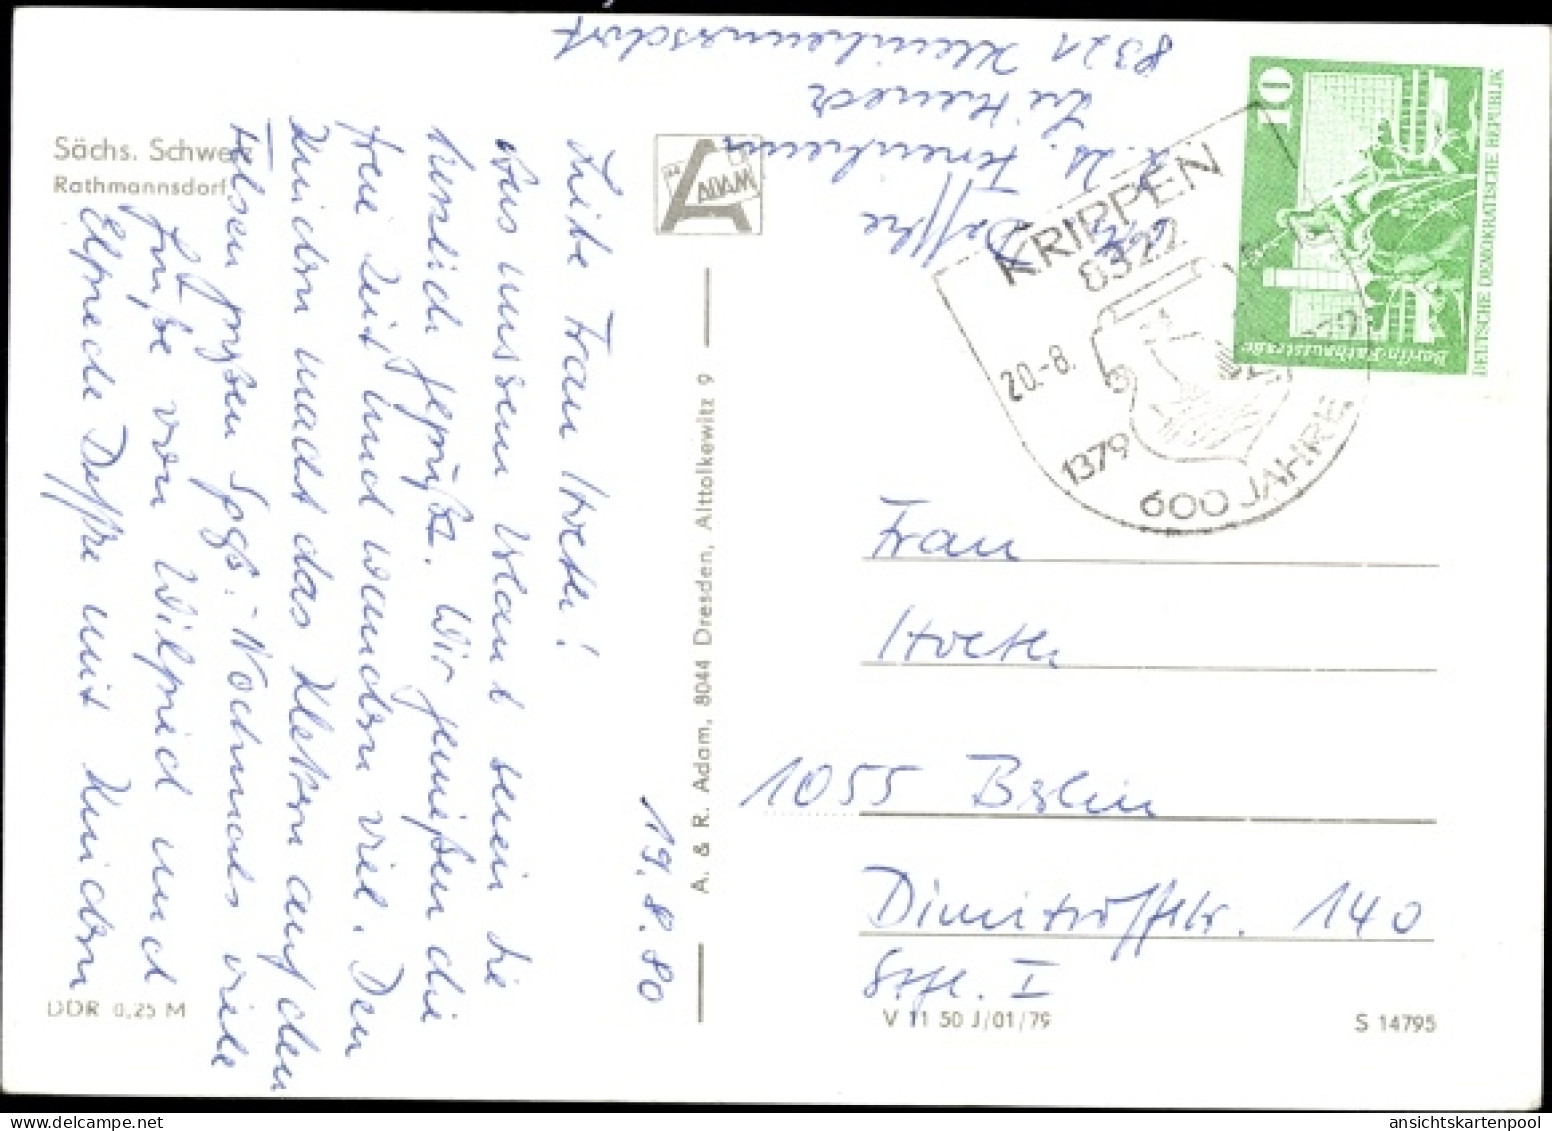 Sächs. Schweiz
Rathmannsdorf
ADAM
Liebe Frau Hoeth!
Aus unsrem Urlaub seien Sie
herzlich gegrüßt. Wir genießen die
freie Zeit und wandern viel. Den
Kindern macht das Klettern auf den
Felsen großen Spaß. Nochmals viele
Grüße von Wilfried und
Elfriede Deffke mit Kindern
19.8.80
A. & R. Adam, 8044 Dresden, Alttolkewitz 9
Deffke
z. Zt.
8321 Kleinhennersdorf
KRIPPEN
8322
20.-8.
1379
600 JAHRE
10
Berlin-Rathausstraße
DEUTSCHE DEMOKRATISCHE REPUBLIK
Frau
Hoeth
1055 Berlin
Dimitroffstr. 140
Stfl. I
DDR 0,25 M
V 11 50 J/01/79
S 14795
ansichtskartenpool